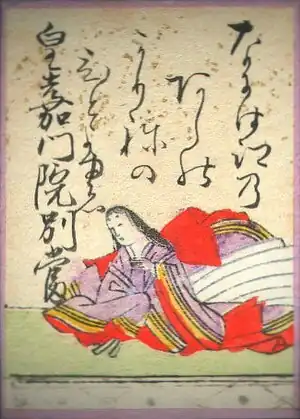 なには江乃
あしの
かりねの
ひとよゆゑ
皇嘉門院別當